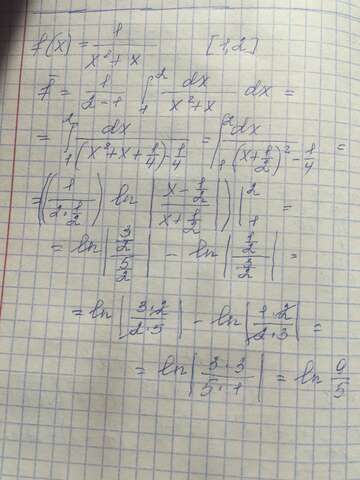 f(x) = 1/(x²+x) [1,2]
f̅ = 1/(2-1) ∫₁² dx/(x²+x) dx =
= ∫₁² dx/((x²+x+1/4)-1/4) = ∫₁² dx/((x+1/2)²-1/4) =
= ((1/(2·1/2)) ln |(x-1/2)/(x+1/2)|) |₁² =
= ln |(3/2)/(5/2)| - ln |(1/2)/(3/2)| =
= ln |(3·2)/(2·5)| - ln |(1·2)/(2·3)| =
= ln |(3·3)/(5·1)| = ln 9/5